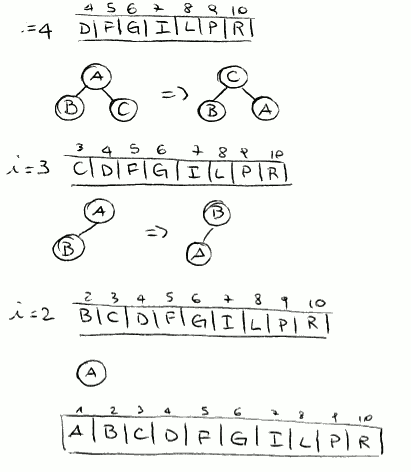 4 5 6 7 8 9 10
i=4 D|F|G|I|L|P|R
A C
B C => B A
3 4 5 6 7 8 9 10
i=3 C|D|F|G|I|L|P|R
A B
B => A
2 3 4 5 6 7 8 9 10
i=2 B|C|D|F|G|I|L|P|R
A
1 2 3 4 5 6 7 8 9 10
A|B|C|D|F|G|I|L|P|R